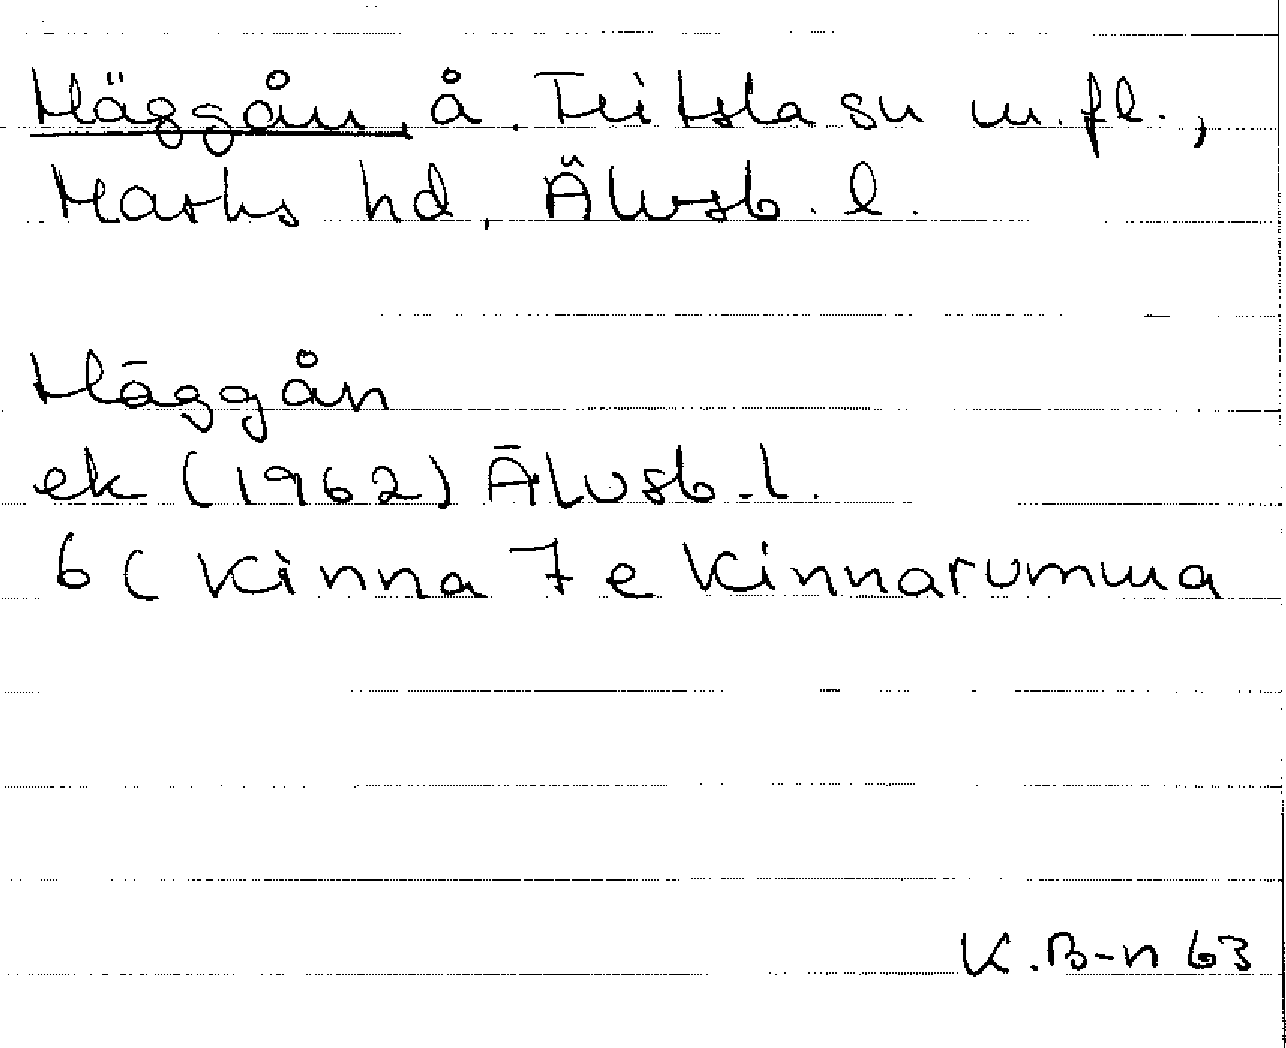 Häggån, å. Fritsla sn m.fl.,
Marks hd, Älvsb. l.
Häggån
ek (1962) Älvsb. l.
6 C Kinna 7 e Kinnarumma
K.B-n 63